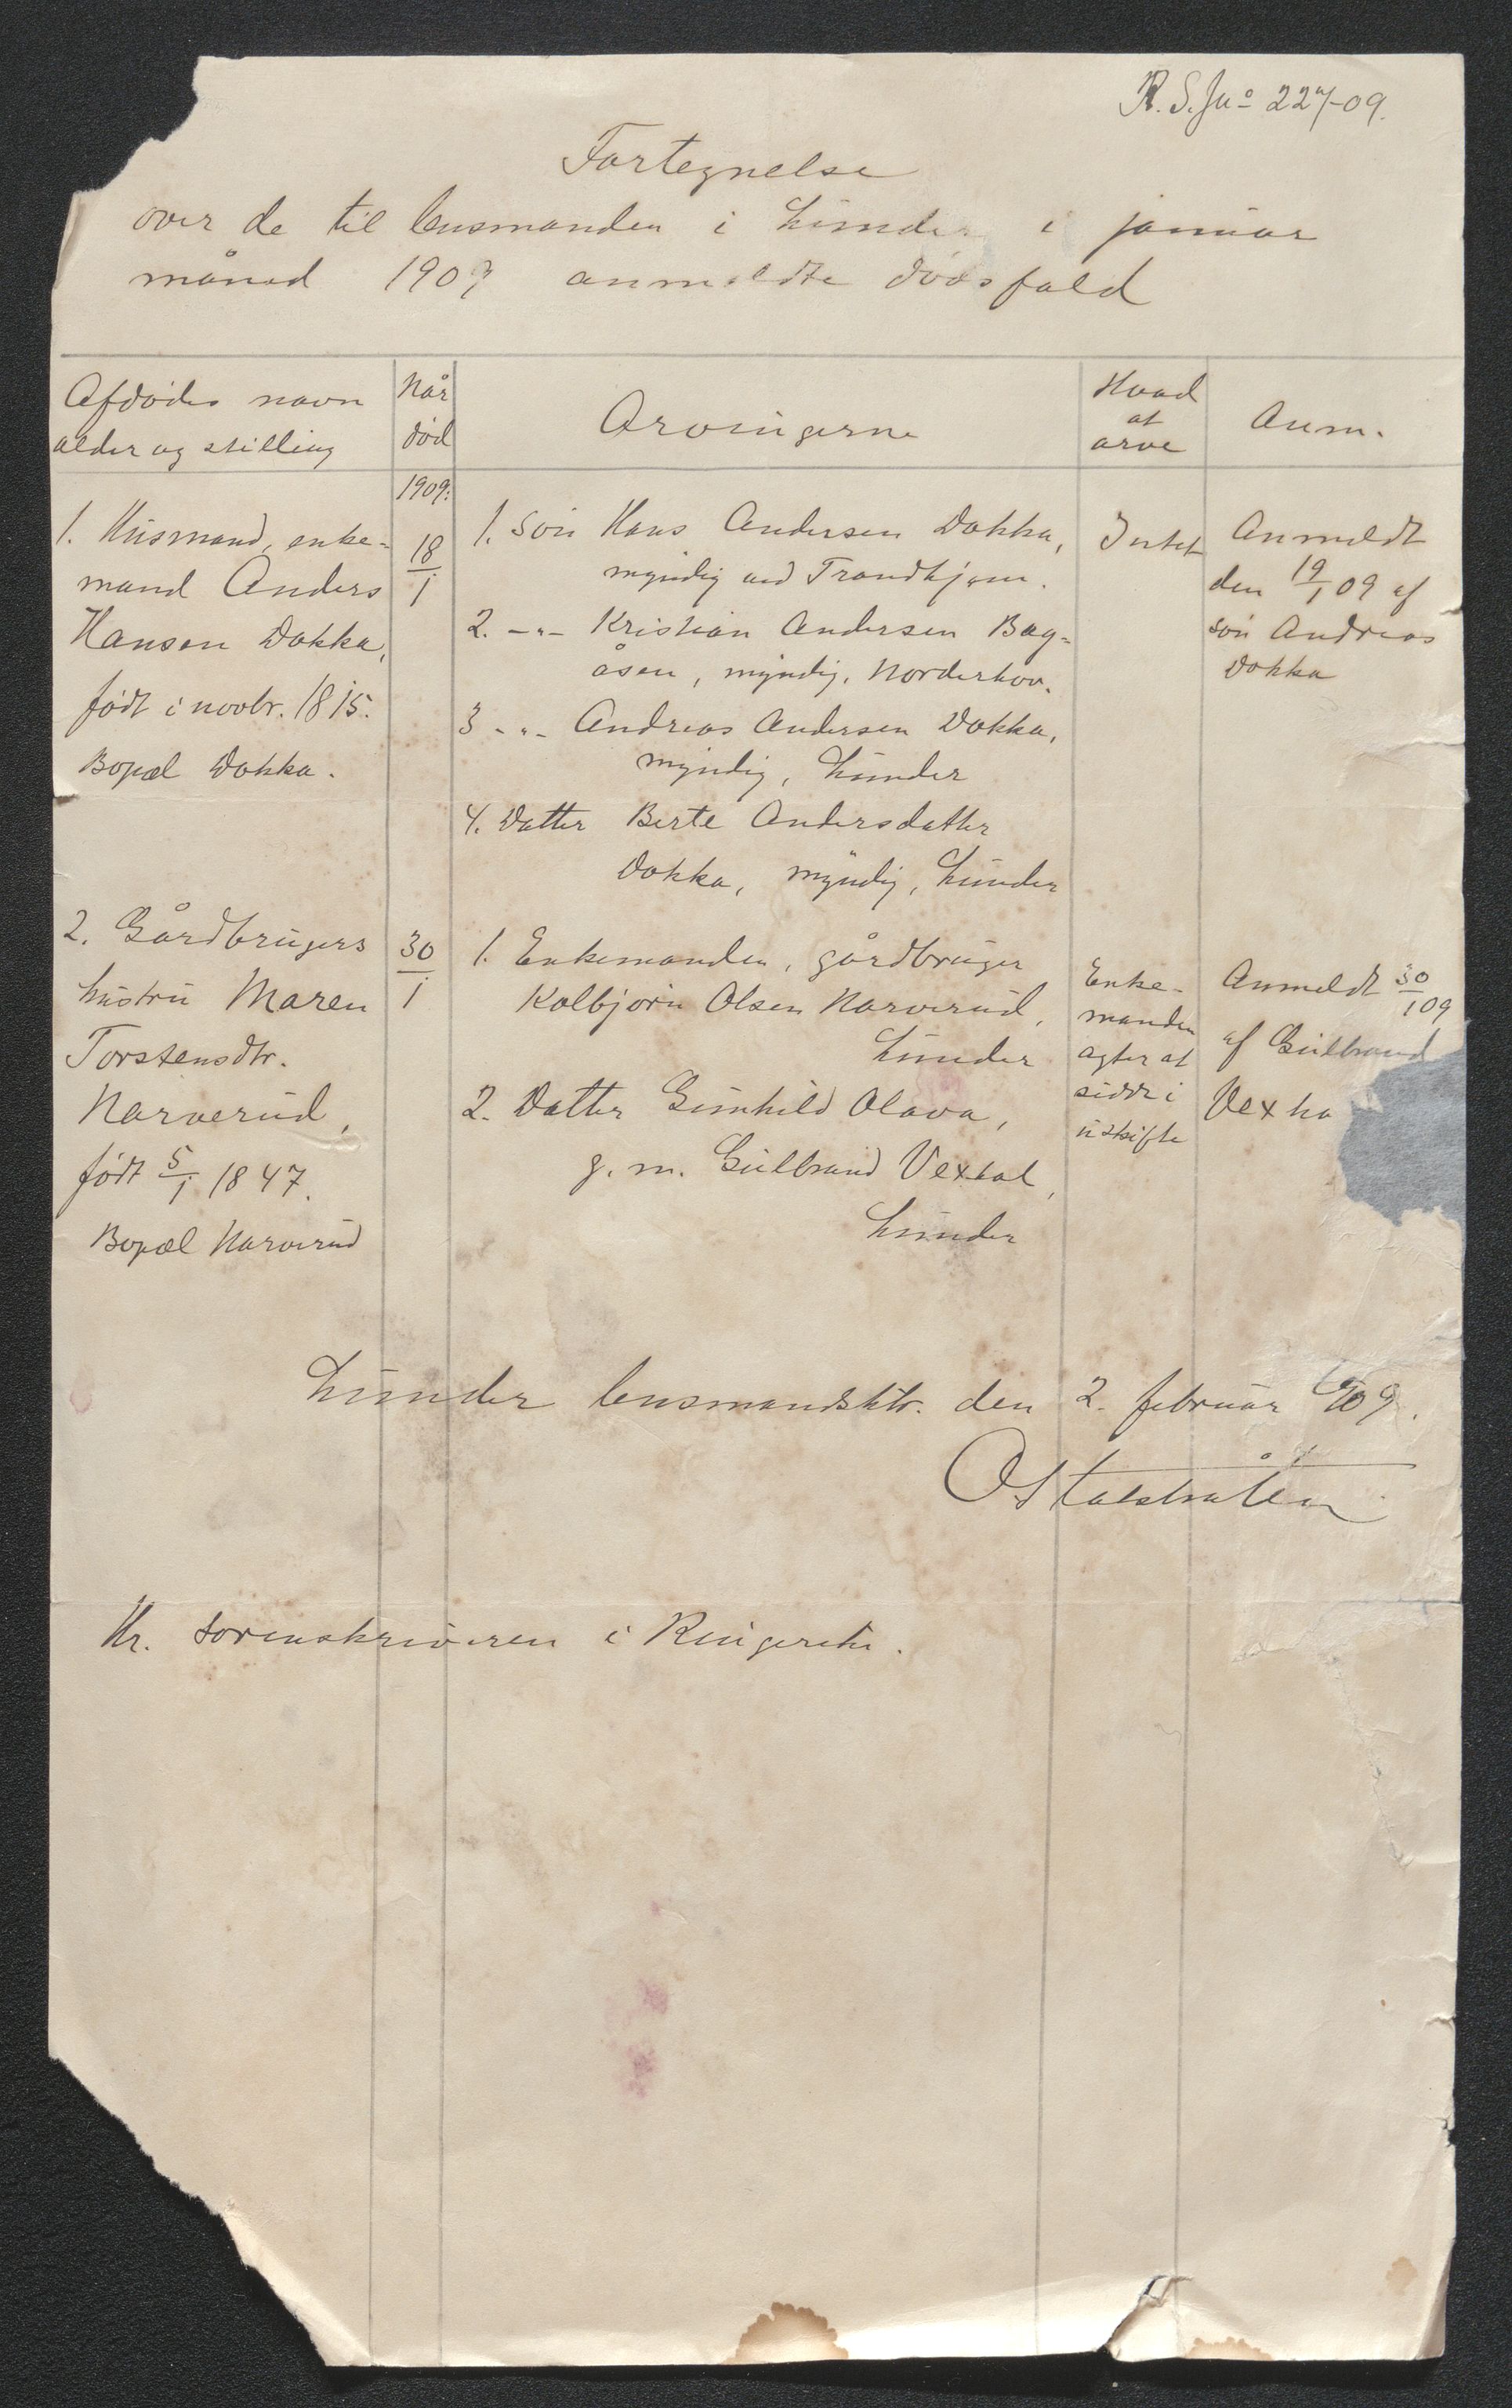 R. S. Jno 227-09.
Fortegnelse
over de til lensmanden i Lunder i januar
måned 1909 anmeldte dødsfald
Afdødes navn
alder og stilling
Når
død
Arvingerne
Hvad
at
arve
Anm.
1909:
1. Husmand, enke-
mand Anders
Hansen Dokka,
født i novbr. 1815.
Bopæl Dokka.
18/1
1. Søn Hans Andersen Dokka,
myndig ved Trondhjem.
2. -"- Kristian Andersen Bag-
åsen, myndig, Norderhov.
3 -"- Andreas Andersen Dokka,
myndig, Lunder
4. Datter Berte Andersdatter
Dokka, myndig, Lunder
Intet
Anmeldt
den 19/1 09 af
søn Andreas
Dokka
2. Gårdbrugers
hustru Maren
Torstensdtr.
Narverud,
født 5/1 1847.
Bopæl Narverud
30/1
1. Enkemanden, gårdbruger
Kolbjørn Olsen Narverud,
Lunder
2. Datter Gunhild Olava,
g. m. Gulbrand Vexhal,
Lunder
Enke-
manden
agter at
sidde i
uskifte
Anmeldt 30/1 09
af Gulbrand
Vexha
Lunder lensmandsktr. den 2. februar 1909.
O Stalsbråten
Hr. sorenskriveren i Ringerike.